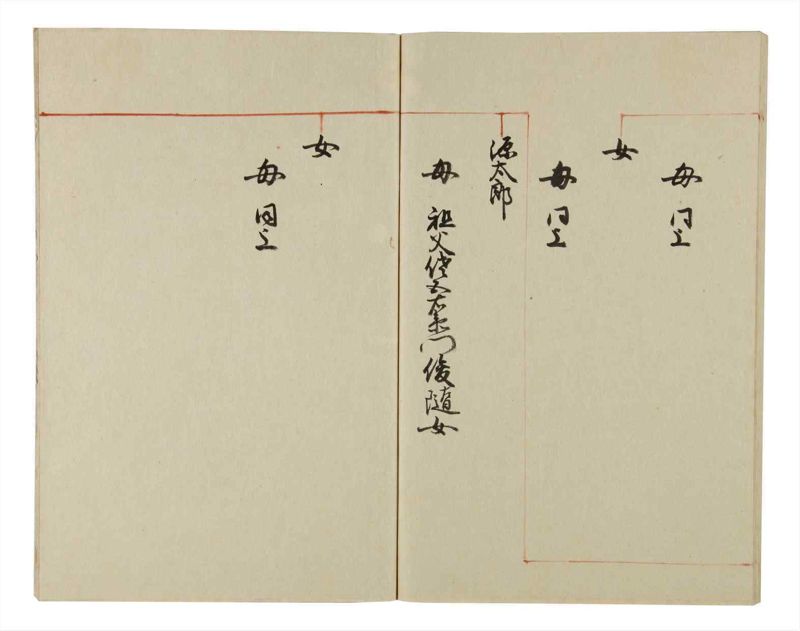 母 同上
女
母 同上
源太郎
母 祖父傳五右衛門俊随女
女
母 同上